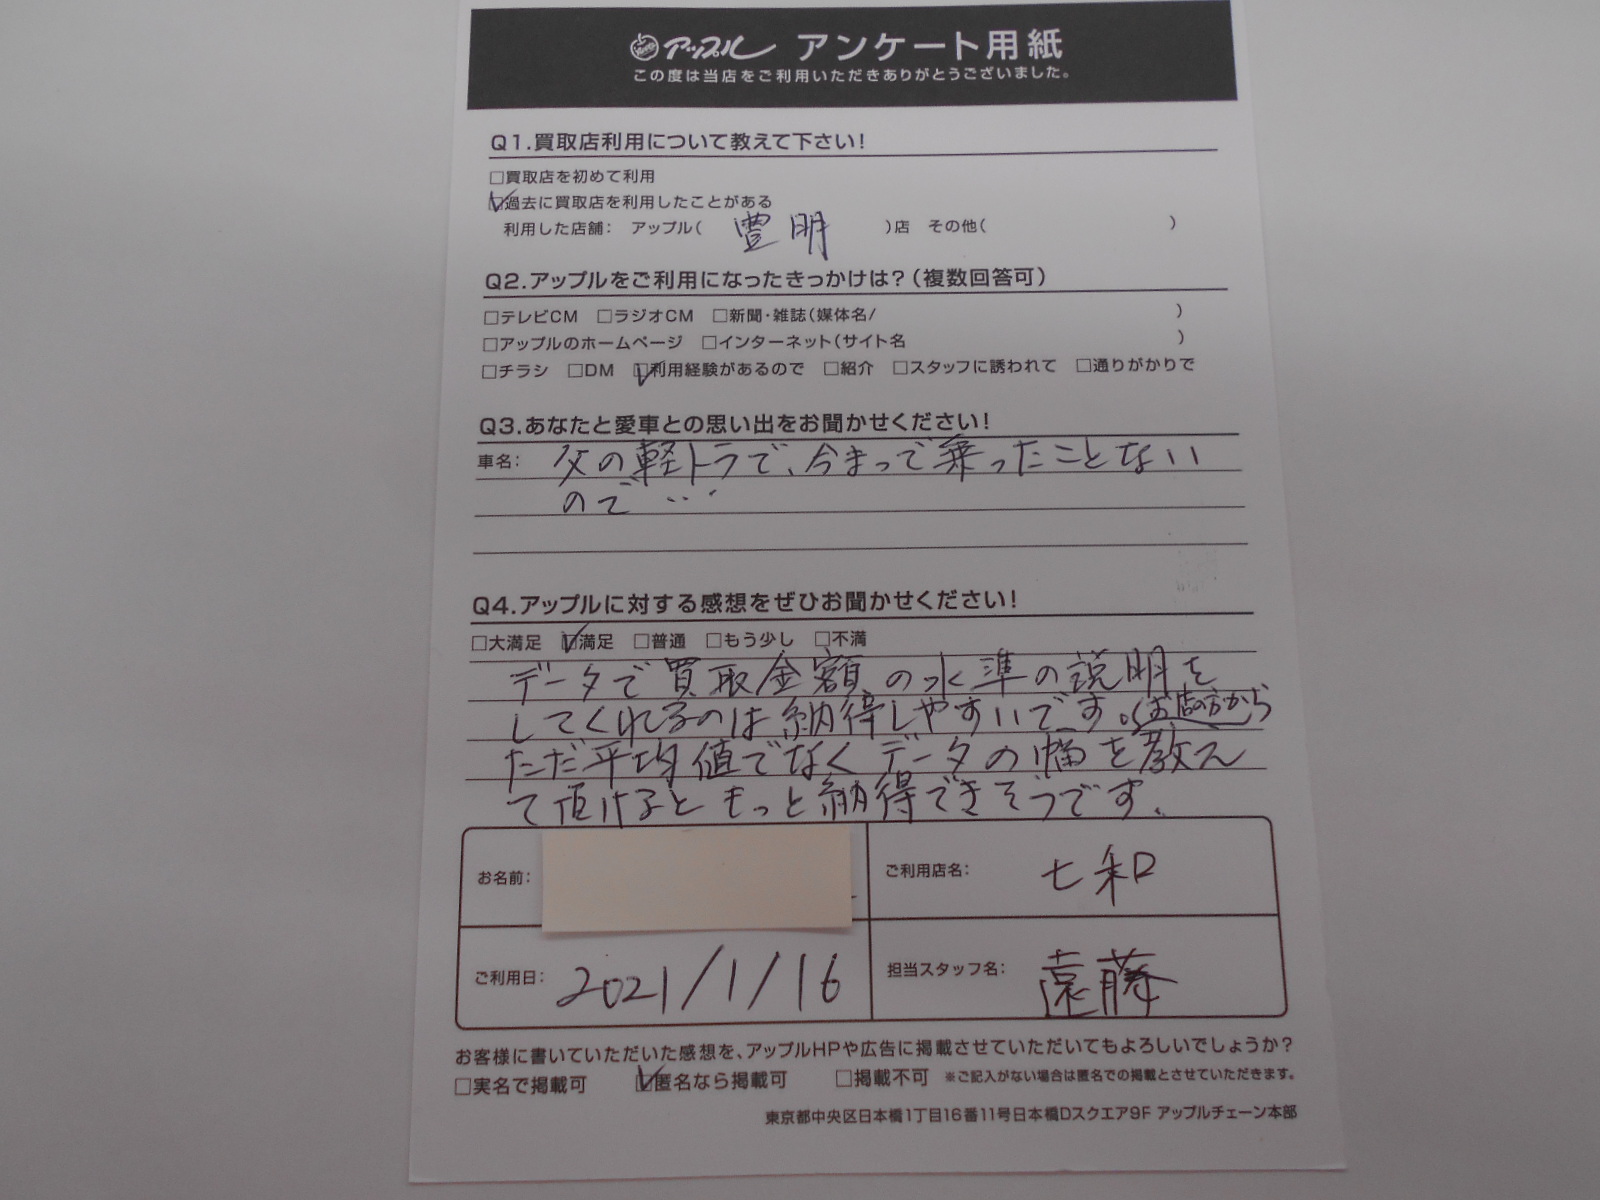 アップル アンケート用紙
この度は当店をご利用いただきありがとうございました。
Q1.買取店利用について教えて下さい!
□買取店を初めて利用
☑過去に買取店を利用したことがある
利用した店舗: アップル( 豊明 )店 その他( )
Q2.アップルをご利用になったきっかけは?(複数回答可)
□テレビCM □ラジオCM □新聞・雑誌(媒体名/ )
□アップルのホームページ □インターネット(サイト名 )
□チラシ □DM ☑利用経験があるので □紹介 □スタッフに誘われて □通りがかりで
Q3.あなたと愛車との思い出をお聞かせください!
車名: 父の軽トラで、今まって乗ったことない
ので…
Q4.アップルに対する感想をぜひお聞かせください!
□大満足 ☑満足 □普通 □もう少し □不満
データで買取金額の水準の説明を
してくれるのは納得しやすいです。(お店の方から
ただ平均値でなくデータの幅を教え
て頂けるともっと納得できそうです。
お名前:
ご利用店名: 七和
ご利用日: 2021/1/16
担当スタッフ名: 遠藤
お客様に書いていただいた感想を、アップルHPや広告に掲載させていただいてもよろしいでしょうか?
□実名で掲載可 ☑匿名なら掲載可 □掲載不可 ※ご記入がない場合は匿名での掲載とさせていただきます。
東京都中央区日本橋1丁目16番11号日本橋Dスクエア9F アップルチェーン本部